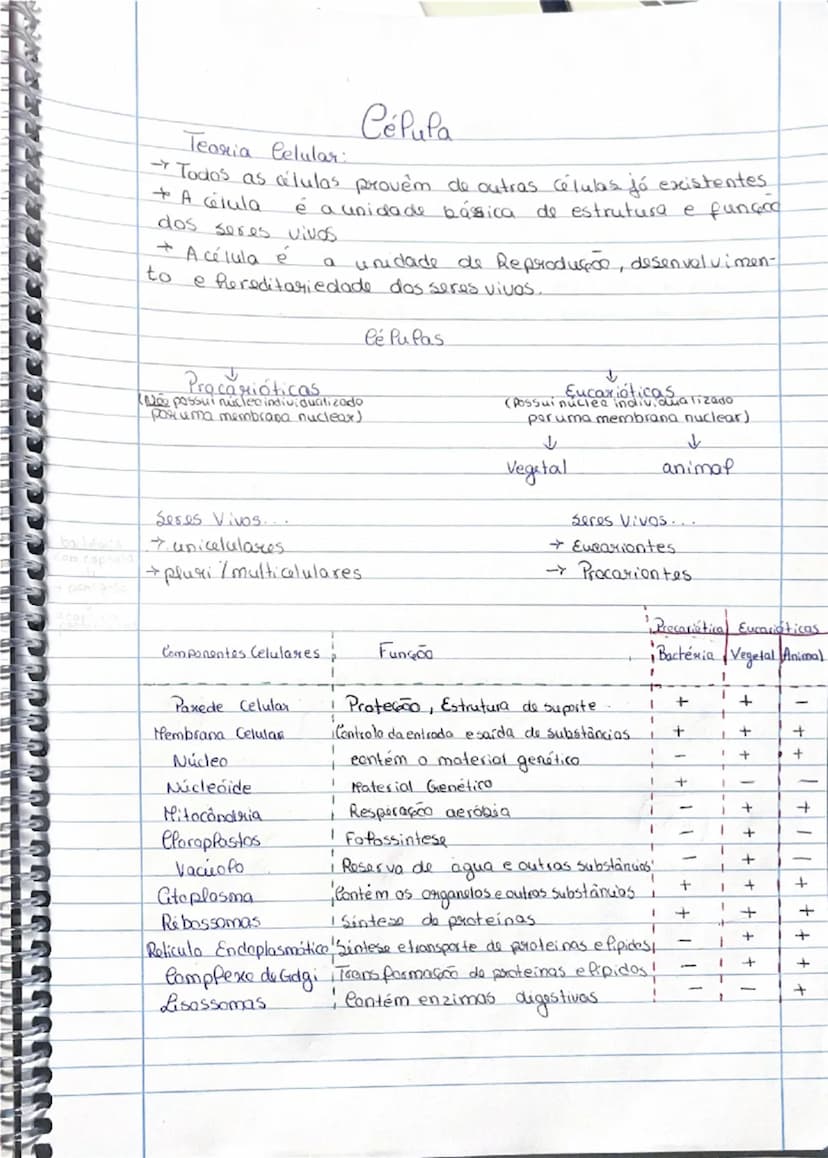 Célula
Teoria Celular:
→ Todas as células provêm de outras células já existentes
→ A célula é a unidade básica de estrutura e função
dos seres vivos
→ A célula é a unidade de Reprodução, desenvolvimen-
to e hereditariedade dos seres vivos.
Células
↓ ↓
Procarióticas Eucarióticas
(Não possui núcleo individualizado (Possui núcleo individualizado
por uma membrana nuclear) por uma membrana nuclear)
↓ ↓
Vegetal animal
Seres Vivos... Seres Vivos...
→ unicelulares → Eucariontes
→ pluri/multicelulares → Procariontes
Procariótica Eucarióticas
Componentes Celulares Função Bactéria Vegetal Animal
Parede Celular Proteção, Estrutura de suporte + + -
Membrana Celular Controlo da entrada e saída de substâncias + + +
Núcleo contém o material genético - + +
Núcleóide Material Genético + - -
Mitocôndria Respiração aeróbia - + +
Cloroplastos Fotossintese - + -
Vacúolo Reserva de água e outras substâncias - + -
Citoplasma Contém os organelos e outras substâncias + + +
Ribossomas Síntese de proteínas + + +
Retículo Endoplasmático Síntese e transporte de proteínas e lípidos - + +
Complexo de Golgi Transformação de proteínas e lípidos - + +
Lisossomas Contém enzimas digestivas - - +